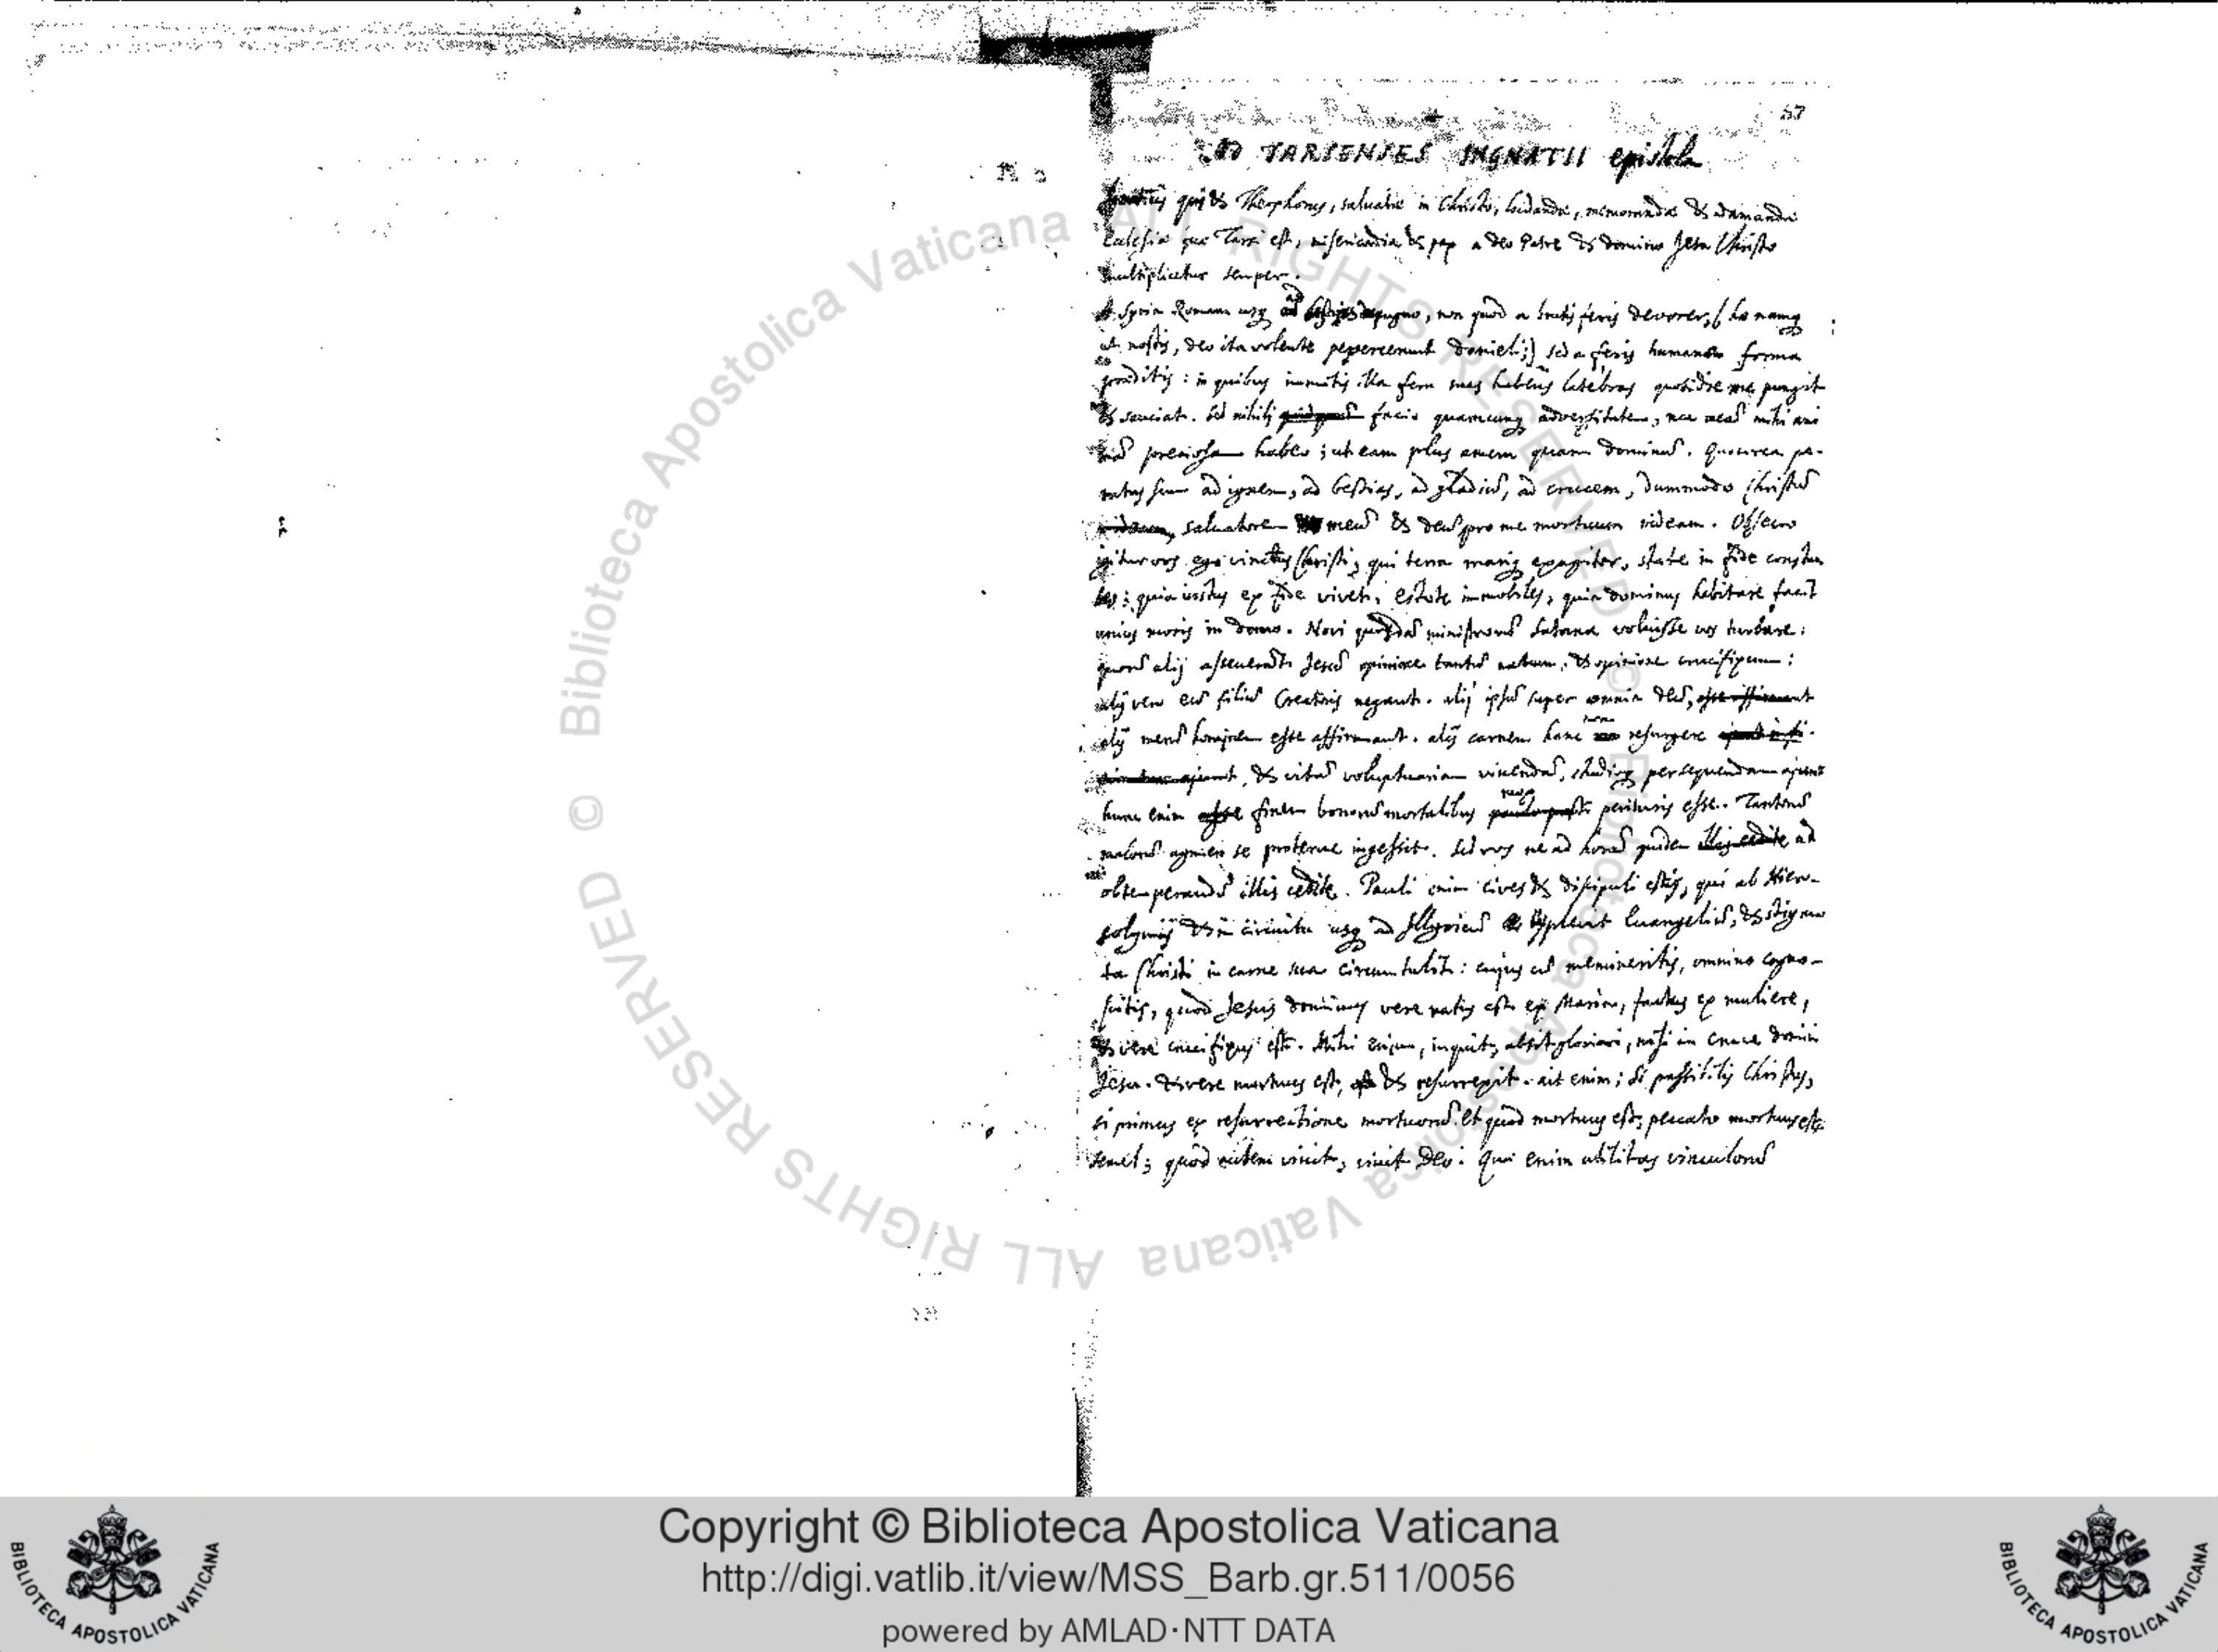 57
AD TARSENSES INGNATII epistola
Ignatius qui & Theophorus, saluatae in Christo, laudandae, memorandae & adamandae
Ecclesiae quae Tarsi est, misericordia & pax a Deo Patre & domino Jesu Christo
multiplicetur semper.
A Syria Romam usq ad pugno, non quod a brutis feris devorer, (hae namq
ut nostis, deo ita volente pepercerunt Danieli;) sed a feris humana forma
praeditis: in quibus immitis illa fera suas habens latebras quotidie me pungit
& sauciat. Sed nihili facio quamcunq adversitatem, nec mihi ani
preciosam habeo; ut eam plus amem quam dominū. Quocirca pa-
ratus sum ad ignem, ad bestias, ad gladiū, ad crucem, dummodo Christū
salvatorem meū & deū pro me mortuum videam. Obsecro
igitur vos ego vinctus Christi, qui terra mariq exagitor, state in fide constan
tes: quia iustus ex fide vivet. estote immobiles, quia dominus habitare facit
unius moris in domo. Novi quosdā ministrorū Satanae voluisse vos turbare:
quorū alij asseverāt Jesū opinione tantū natum, & opinione crucifixum:
alij vero eū filiū Creatoris negant. alij ipsū super omnia deū,
alij merū hominem esse affirmant. alij carnem hanc non resurgere
& vitā voluptuariam vivendā, perseq­uendam ajunt
hunc enim finem bonorū mortalibus perituris esse. Tantorū
malorū agmen se proterve ingessit. Sed vos ne ad horā quidem ad
obtemperandū illis cedite. Pauli enim cives & discipuli estis, qui ab Hiero-
solymis & in circuitu usq ad Illyricū Euangeliū, & stigma
ta Christi in carne sua circumtulit: cujus cū memineritis, omnino cogno-
scitis, quod Jesus dominus vere natus est ex Maria, factus ex muliere,
& vere crucifixus est. Mihi enim, inquit, absit gloriari, nisi in cruce domini
Jesu. & vere mortuus est, & resurrexit. ait enim; Si passibilis Christus,
si primus ex resurrectione mortuorū. Et quod mortuus est, peccato mortuus est
semel; quod autem vivit, vivit Deo. Quae enim utilitas vinculorū
© Biblioteca Apostolica Vaticana ALL RIGHTS RESERVED © Biblioteca Apostolica Vaticana ALL RIGHTS RESERVED
Copyright © Biblioteca Apostolica Vaticana
http://digi.vatlib.it/view/MSS_Barb.gr.511/0056
powered by AMLAD·NTT DATA
BIBLIOTECA APOSTOLICA VATICANA
BIBLIOTECA APOSTOLICA VATICANA